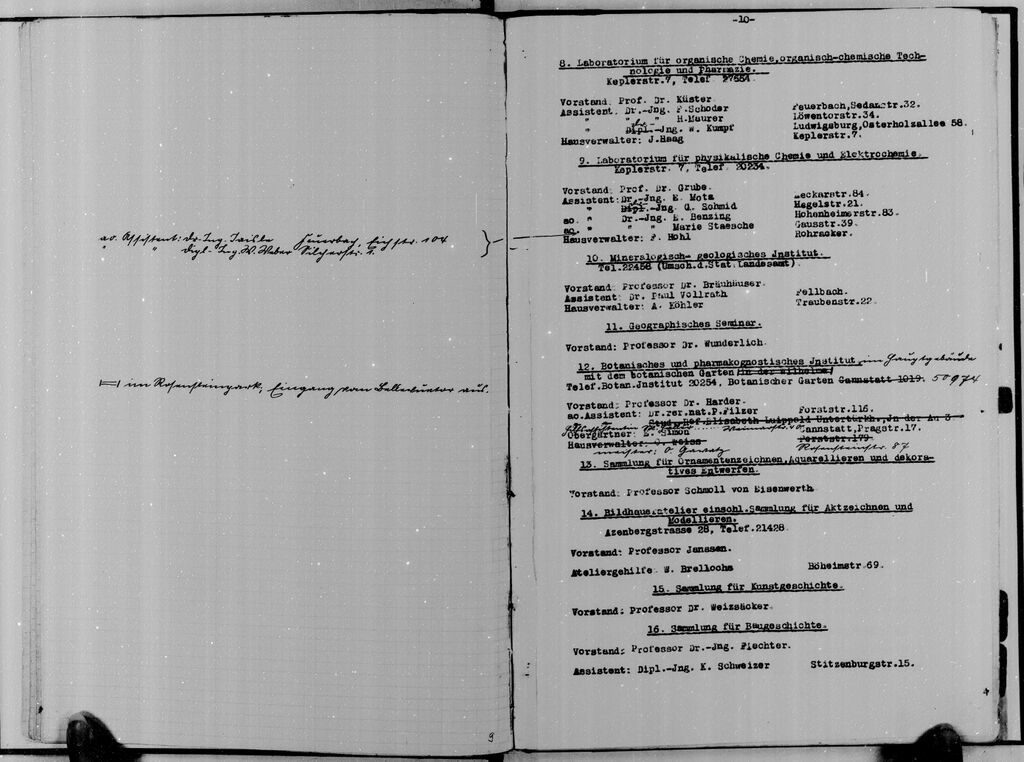 ao. Assistent: Dr. Ing. Feuerbach, Eichstr. 104
" " Dipl. Ing. W. Weber Silcherstr. 1.
im Rosensteinpark, Eingang vom
9
-10-
8. Laboratorium für organische Chemie, organisch-chemische Tech-
nologie und Pharmazie.
Keplerstr. 7, Telef 27551
Vorstand: Prof. Dr. Küster
Assistent: Dr.-Jng. F. Schoder Feuerbach, Sedanstr. 32.
" " " H. Maurer Löwentorstr. 34.
" Dr. Dipl.-Jng. W. Kumpf Ludwigsburg, Osterholzallee 58.
Hausverwalter: J. Haag Keplerstr. 7.
9. Laboratorium für physikalische Chemie und Elektrochemie.
Keplerstr. 7, Telef. 20234.
Vorstand: Prof. Dr. Grube.
Assistent: Dr.-Jng. E. Mota Neckarstr. 84.
" Dipl.-Jng. G. Schmid Hegelstr. 21.
ao. " Dr.-Jng. E. Benzing Hohenheimerstr. 83.
ao. " " " Marie Staesche Gausstr. 39.
Hausverwalter: F. Hohl Rohracker.
10. Mineralogisch- geologisches Jnstitut.
Tel. 22458 (Umsch.d.Stat.Landesamt).
Vorstand: Professor Dr. Bräuhäuser.
Assistent: Dr. Paul Vollrath Fellbach.
Hausverwalter: A. Köhler Traubenstr. 22.
11. Geographisches Seminar.
Vorstand: Professor Dr. Wunderlich.
12. Botanisches und pharmakognostisches Jnstitut im Hauptgebäude
mit dem botanischen Garten (in der Wilhelma)
Telef. Botan. Jnstitut 20254, Botanischer Garten Cannstatt 1019. 50974
Vorstand: Professor Dr. Harder.
ao. Assistent: Dr.rer.nat. P. Filzer Forststr. 116.
Elisabeth Luippold Untertürkh., Jn der Au 3
Obergärtner: E. Simon Cannstatt, Pragstr. 17.
Hausverwalter: O. Weiss Forststr. 179
meister: O. Rosensteinstr. 87
13. Sammlung für Ornamentenzeichnen, Aquarellieren und dekora-
tives Entwerfen.
Vorstand: Professor Schmoll von Eisenwerth
14. Bildhaueratelier einschl. Sammlung für Aktzeichnen und
Modellieren.
Azenbergstrasse 28, Telef. 21428.
Vorstand: Professor Janssen.
Ateliergehilfe: W. Brellochs Böheimstr 69.
15. Sammlung für Kunstgeschichte.
Vorstand: Professor Dr. Weizsäcker.
16. Sammlung für Baugeschichte.
Vorstand: Professor Dr.-Jng. Fiechter.
Assistent: Dipl.-Jng. K. Schweizer Stitzenburgstr. 15.